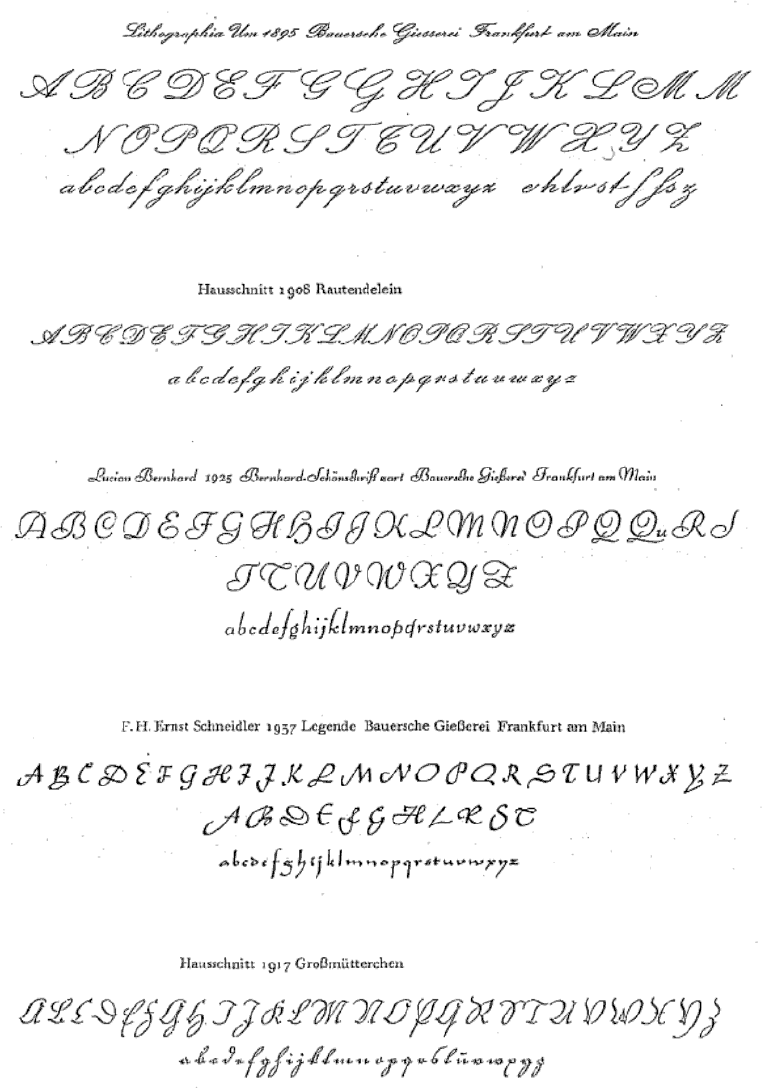 Lithographia Um 1895 Bauersche Giesserei Frankfurt am Main
A B C D E F G G H I J K L M M
N O P Q R S T T U V W X Y Z
abcdefghijklmnopqrstuvwxyz chlrst ſ ſs z
Hausschnitt 1908 Rautendelein
A B C D E F G H I K L M N O P Q R S T U V W X Y Z
abcdefghijklmnopqrstuvwxyz
Lucian Bernhard 1925 Bernhard-Schönschrift zart Bauersche Gießerei Frankfurt am Main
A B C D E F G H H I J K L M N O P Q Qu R S
T T U V W X Y Z
abcdefghijklmnopqrstuvwxyz
F. H. Ernst Schneidler 1937 Legende Bauersche Gießerei Frankfurt am Main
A B C D E F G H I J K L M N O P Q R S T U V W X Y Z
A B D E F G H L R S T
abcdefghijklmnopqrstuvwxyz
Hausschnitt 1917 Großmütterchen
A B C D E F G H I J K L M N O P Q R S T U V W X Y Z